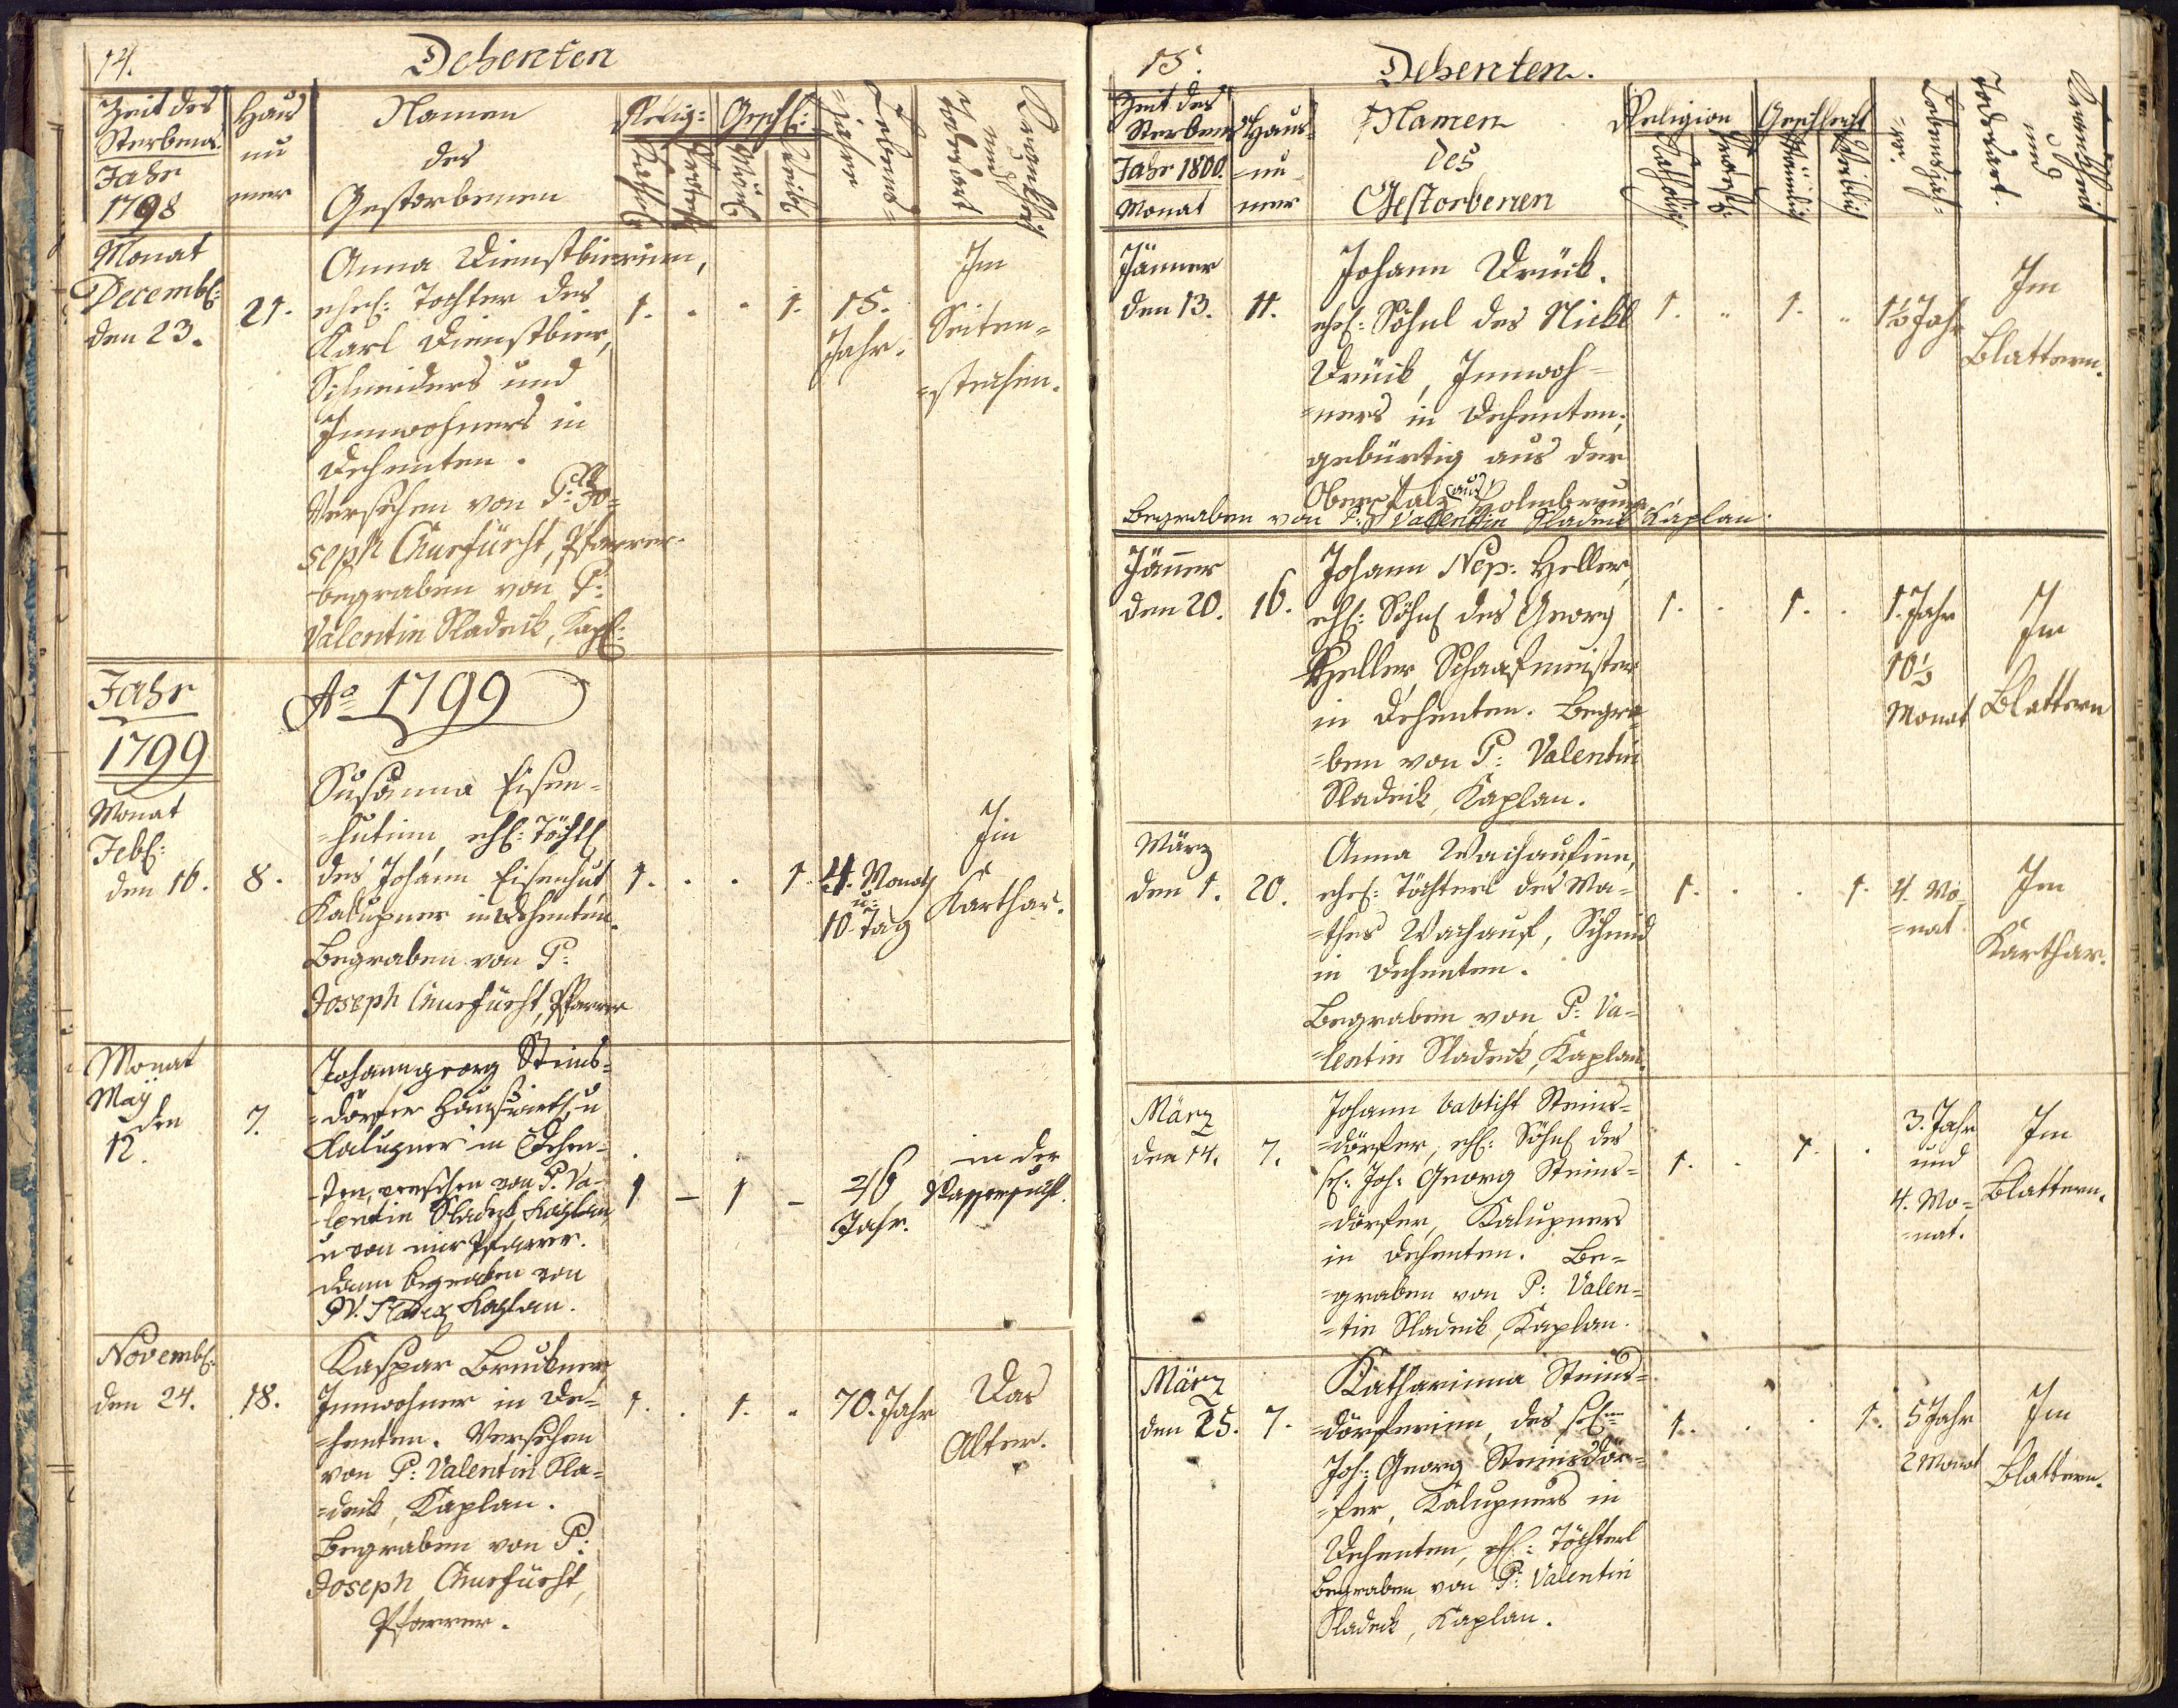 14.
Dehenten
Zeit des
Sterbens
Jahr
1798
Haus
nu
mer
Namen
des
Gestorbenen
Relig:
Geschl:
Lebens=
=jahre
Krankheit
und
Todesart
Monat
Decemb:
den 23.
21.
Anna Dienstbierinn,
ehel: Tochter des
Karl Dienstbier,
Schneiders und
Innwohners in
Dehenten.
Versehen von P: Jo=
seph Pfarrer.
begraben von P:
Valentin Sladeck, Kapl:
1. . . 1.
15.
Jahr.
Im
Seiten=
=stechen.
Jahr
1799
Ao 1799
Monat
Feb:
den 16.
8.
Susanna Eisen=
=hutinn, ehl: Töchtl
des Johann Eisenhut
Kalupner in Dehenten.
Begraben von P:
Joseph Pfarrer
1. . . 1.
4. Monath
u:
10 Tag
Im
Karthar.
Monat
May
den
12.
7.
Johanngeorg Steins=
=dörfer Hauswirth u
Kalupner in Dehen=
=ten, versehen von P. Va=
=lentin Sladeck Kaplan
u von mir Pfarrer.
dann begraben von
P V. Sladeck Kaplan.
1 – 1 –
46
Jahr.
in der
Wassersucht.
Novemb:
den 24.
18.
Kaspar Bruckner
Innwohner in De=
=henten. Versehen
von P: Valentin Sla=
=deck, Kaplan.
Begraben von P:
Joseph
Pfarrer.
1. . 1. .
70. Jahr
Das
Alter.
15.
Dehenten.
Zeit des
Sterbens
Jahr 1800.
Monat
Haus=
=nu
mer
Namen
des
Gestorbenen
Religion
Katholisch
Protest:
Geschlecht
Männlich
Weiblich
Lebensjah=
=re.
Krankheit
und
Todesart.
Jänner
den 13.
11.
Johann Drück.
ehel: Söhnl des Nickl
Drück, Innwoh=
=ners in Dehenten,
gebürtig aus der
Oberpfalz aus
Begraben von P: Valentin Sladeck Kaplan.
1. . 1. .
1½ Jahr
Im
Blattern.
Jänner
den 20.
16.
Johann Nep: Heller,
ehl: Söhnl des Georg
Heller Schaafmeister
in Dehenten. Begra=
=ben von P: Valentin
Sladeck, Kaplan.
1. . 1. .
1. Jahr
10½
Monat
Im
Blattern
März
den 1.
20.
Anna Wachaufinn,
ehel: Töchterl des Ma=
=thes Wachauf, Schmid
in Dehenten.
Begraben von P: Va=
=lentin Sladeck, Kaplan.
1. . . 1.
4. Mo=
=nat
Im
Karthar.
März
den 14.
7.
Johann babtist Steins=
=dörfer, ehl: Söhnl des
sel: Joh: Georg Steins=
=dörfer, Kalupners
in Dehenten. Be=
=graben von P: Valen=
=tin Sladeck, Kaplan.
1. . 1. .
3. Jahr
und
4. Mo=
=nat.
Im
Blattern.
März
den 25.
7.
Katharinna Steins=
=dörferinn, des sel:
Joh: Georg Steinsdör=
=fer, Kalupners in
Dehenten, ehl: Töchterl
Begraben von P: Valentin
Sladeck, Kaplan.
1. . . 1.
5 Jahr
2 Monat
Im
Blattern.